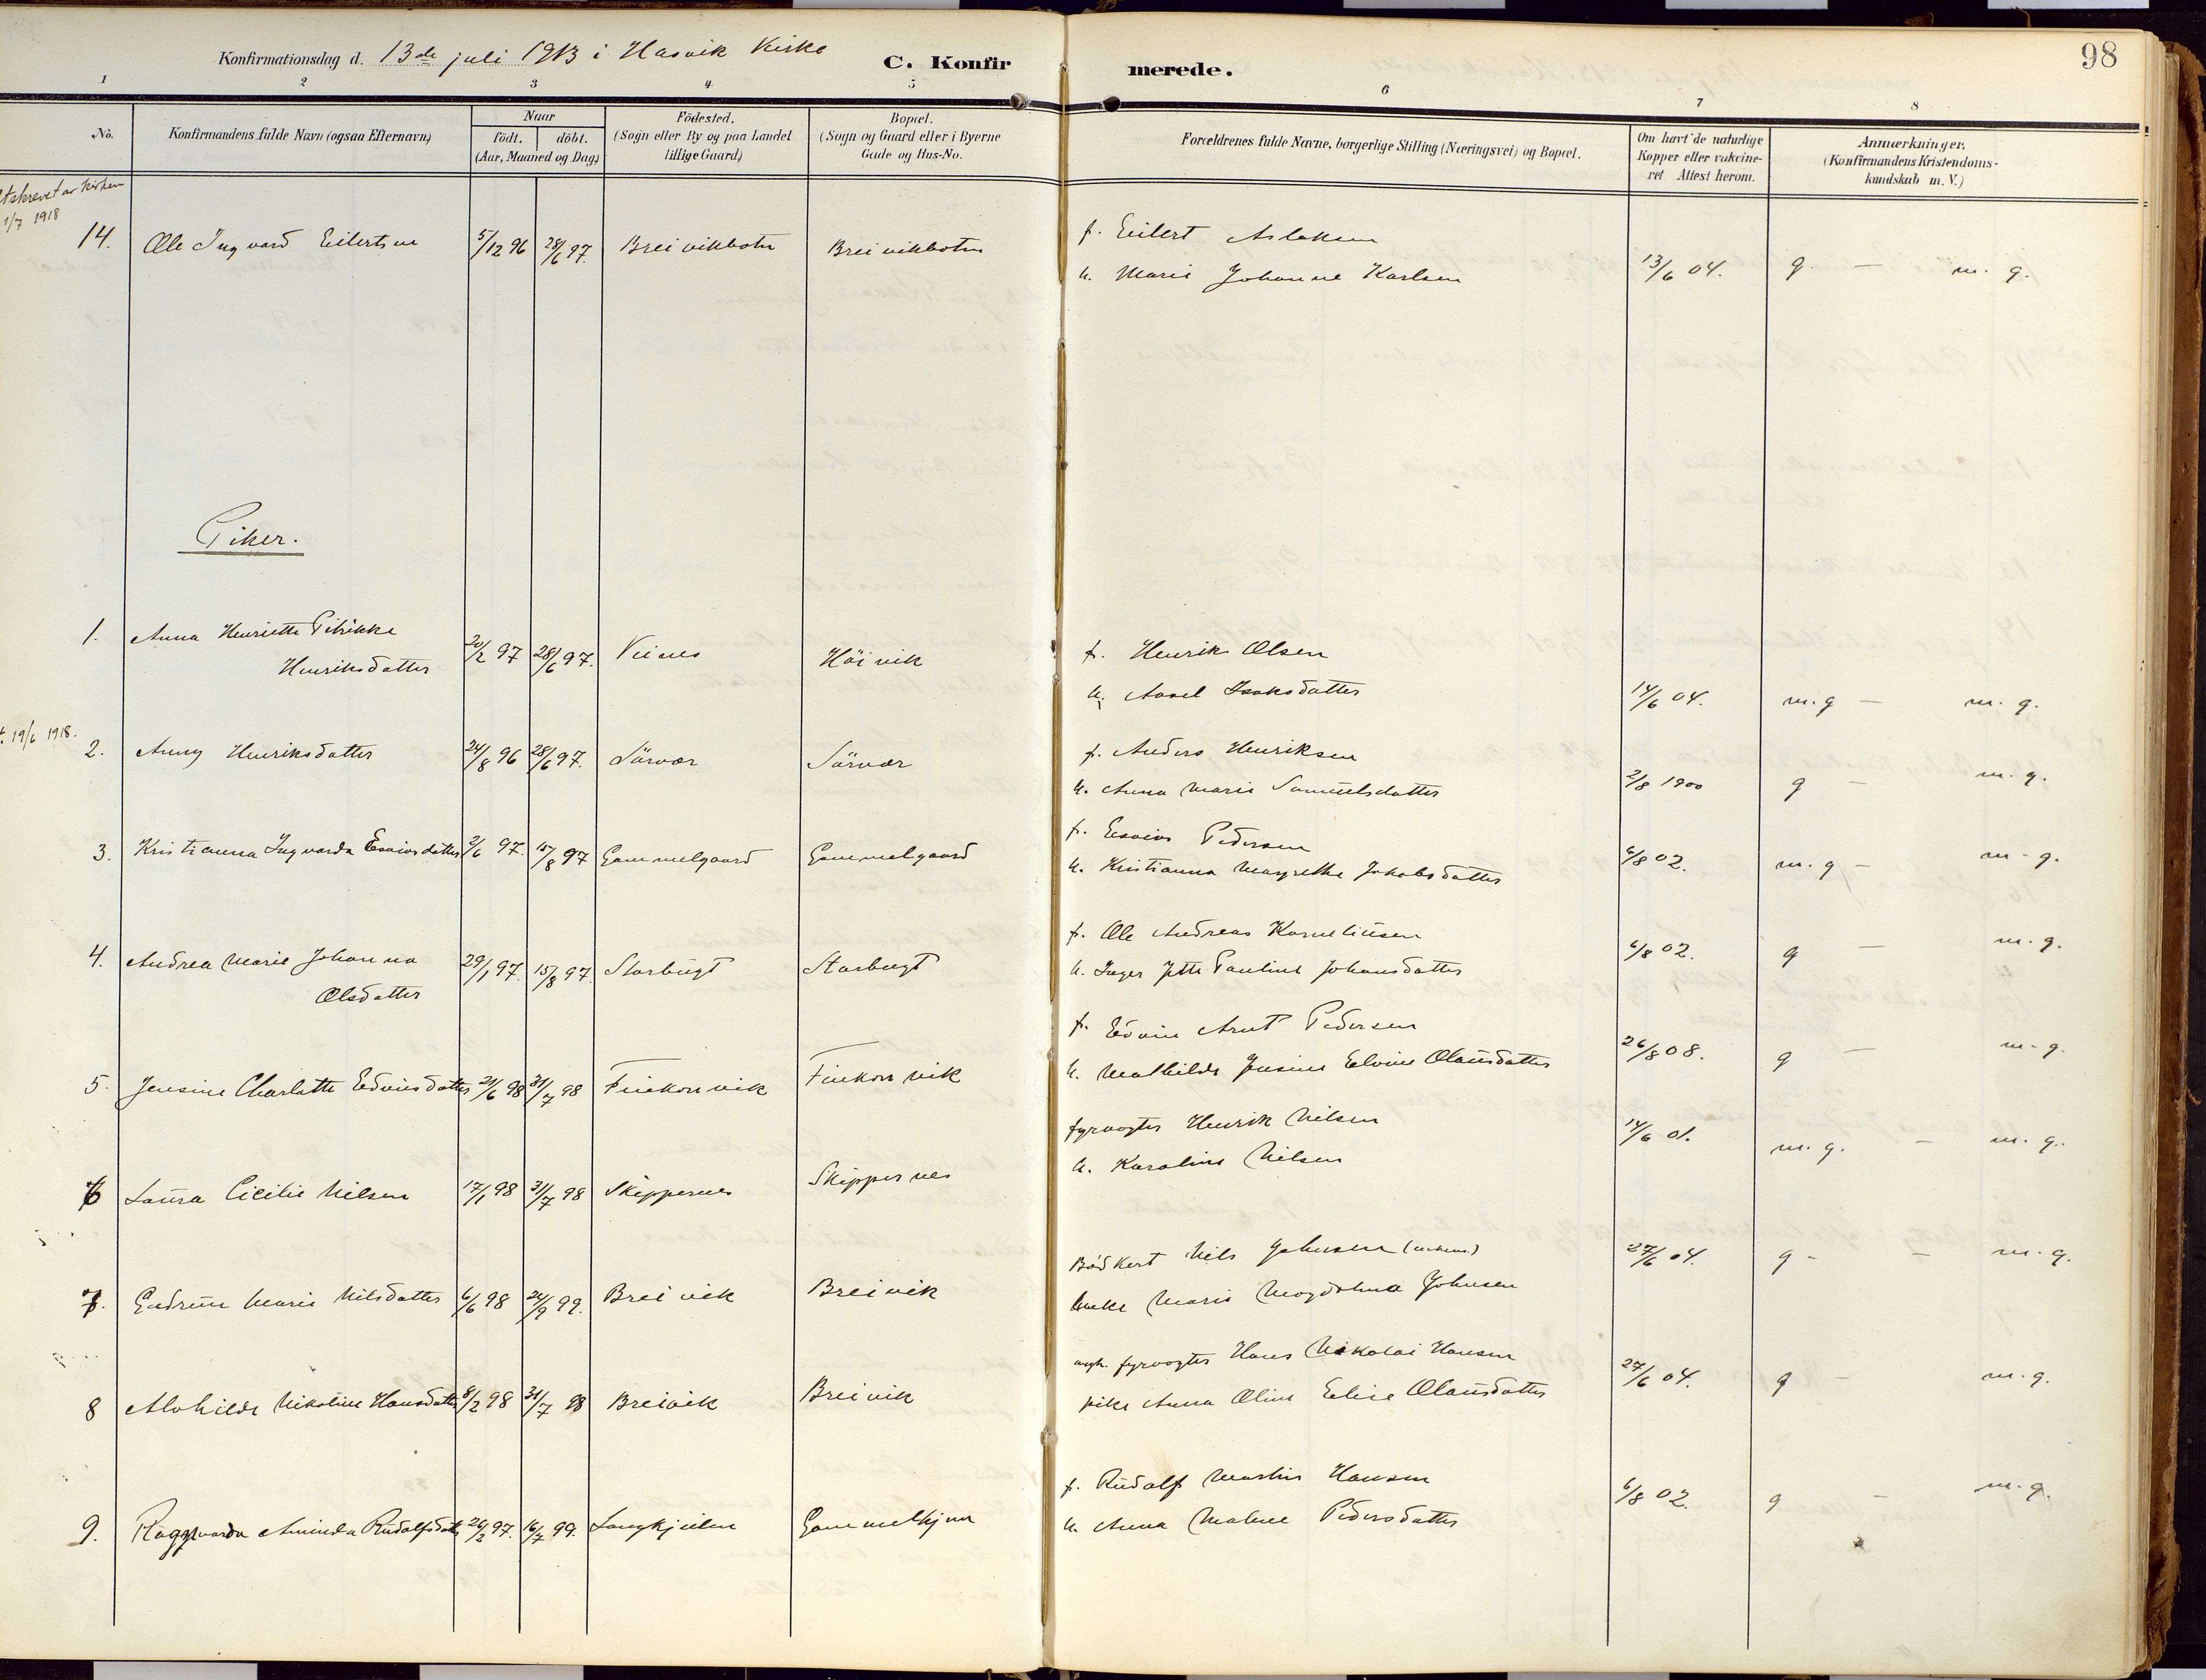 98
Konfirmationsdag d. 13de juli 1913 i Hasvik Kirke
C. Konfirmerede.
1 2 3 4 5 6 7 8
No.
Konfirmandens fulde Navn (ogsaa Efternavn)
Naar
födt. döbt.
(Aar, Maaned og Dag)
Födested.
(Sogn eller By og paa Landet
tillige Gaard)
Bopæl.
(Sogn og Gaard eller i Byerne
Gade og Hus-No.
Forældrenes fulde Navne, borgerlige Stilling (Næringsvei) og Bopæl.
Om havt de naturlige
Kopper eller vakcine-
ret Attest herom.
Anmærkninger.
(Konfirmandens Kristendoms-
kundskab m. V.)
1/7 1918
14. Ole Ingvard Eilertsen 5/12 96 28/6 97. Breivikbotn Breivikbotn
f. Eilert Aslaksen
h. Marie Johanne Karlsen 13/6 04. g. — m. g.
Piker.
1. Anna Henriette Petrikke
Henriksdatter 20/2 97 28/6 97. Veines Höivik
f. Henrik Olsen
h. Aasel Isaksdatter 14/6 04. m. g — m. g.
t. 19/6 1918.
2. Anny Henriksdatter 24/8 96 28/6 97. Sörvær Sörvær
f. Anders Henriksen
h. Anna Marie Samuelsdatter 2/8 1900 g — m. g.
3. Kristianna Ingvarda Esaiasdatter 2/6 97. 15/8 97 Gammelgaard Gammelgaard
f. Esaias Pedersen
h. Kristianna Margrethe Jakobsdatter 6/8 02. m. g — m - g.
4. Andrea Marie Johanna
Olsdatter 29/1 97. 15/8 97. Starbugt Starbugt
f. Ole Andreas Korneliusen
h. Inger Jette Pauline Johansdatter 6/8 02. g — m. g.
5. Jensine Charlotte Edvinsdatter 21/6 98 31/7 98 Finkonvik Finkonvik
f. Edvin Arnt Pedersen
h. Mathilde Jensine Elvine Olausdatter 26/8 08. g — m - g.
6 Laura Cicilie Nilsen 17/1 98 31/7 98 Skippernes Skippernes
fyrvogter Henrik Nilsen
h. Karoline Nilsen 14/6 01. m. g. — m. g.
7. Gudrun Marie Nilsdatter 6/6 98 24/9 99. Breivik Breivik
Bödkert Nils Johnsen
Enke Marie Magdalena Johnsen 27/6 04. g - — m. g.
8 Alvhilde Nikoline Hansdatter 8/2 98 31/7 98 Breivik Breivik
fyrvogter Hans Nikolai Hansen
pike Anna Oline Elise Olausdatter 27/6 04. g — m. g.
9. Raggvarda Aminda Rudolfsdatter 26/2 97. 16/7 99. Langkjeilen Gammelkjem
f. Rudolf Martin Hansen
h. Anna Malene Pedersdatter 6/8 02. g — m. g.